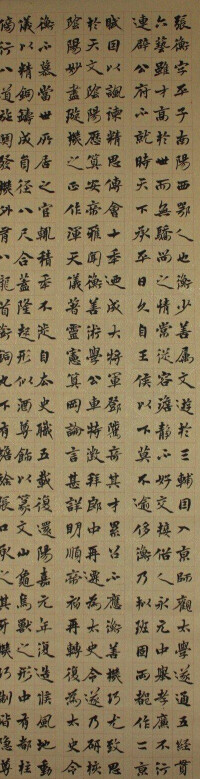 張衡字平子南陽西鄂人也衡少善屬文遊於三輔因入京師觀太學遂通五經貫
六藝雖才高於世而無驕尚之情常從容澹靜不好交接俗人永元中舉孝廉不行
連辟公府不就時天下承平日久自王侯以下莫不逾侈衡乃擬班固兩都作二京
賦因以諷諫精思傅會十年迺成大將軍鄧騭奇其才累召不應衡善機巧尤致思
於天文陰陽歷算安帝雅聞衡善術學公車特徵拜郎中再遷為太史令遂乃研核
陰陽妙盡璇機之正作渾天儀著靈憲算罔論言甚詳明順帝初再轉復為太史令
衡不慕當世所居之官輒積年不徙自去史職五載復還陽嘉元年復造候風地動
儀以精銅鑄成員徑八尺合蓋隆起形似酒尊飾以篆文山龜鳥獸之形中有都柱
傍行八道施關發機外有八龍首銜銅丸下有蟾蜍張口承之其牙機巧制皆隱